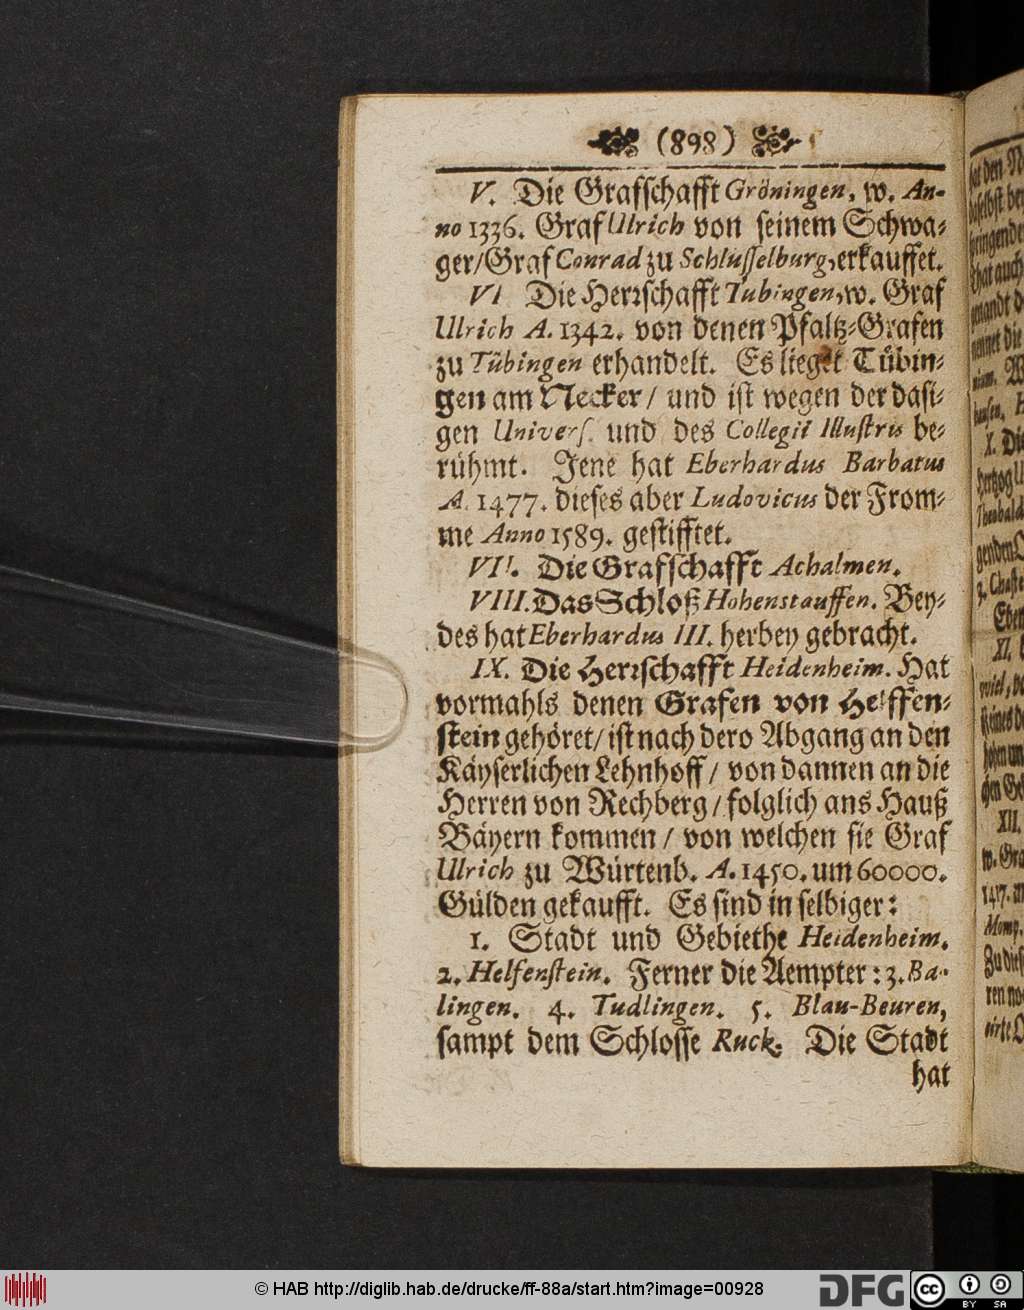 (898)
V. Die Grafschafft Gröningen, w. An-
no 1336. Graf Ulrich von seinem Schwa-
ger/ Graf Conrad zu Schlüsselburg, erkauffet.
VI Die Herrschafft Tubingen, w. Graf
Ulrich A. 1342. von denen Pfaltz-Grafen
zu Tübingen erhandelt. Es lieget Tübin-
gen am Necker / und ist wegen der dasi-
gen Univers. und des Collegii Illustris be-
rühmt. Jene hat Eberhardus Barbatus
A. 1477. dieses aber Ludovicus der From-
me Anno 1589. gestifftet.
VII. Die Grafschafft Achalmen.
VIII. Das Schloß Hohenstauffen. Bey-
des hat Eberhardus III. herbey gebracht.
IX. Die Herrschafft Heidenheim. Hat
vormahls denen Grafen von Helffen-
stein gehöret/ ist nach dero Abgang an den
Käyserlichen Lehnhoff / von dannen an die
Herren von Rechberg / folglich ans Hauß
Bäyern kommen / von welchen sie Graf
Ulrich zu Würtenb. A. 1450. um 60000.
Gülden gekaufft. Es sind in selbiger:
1. Stadt und Gebiethe Heidenheim.
2. Helfenstein. Ferner die Aempter: 3. Ba-
lingen. 4. Tudlingen. 5. Blau-Beuren,
sampt dem Schlosse Ruck. Die Stadt
hat
X. Di
XI.
XII.
© HAB http://diglib.hab.de/drucke/ff-88a/start.htm?image=00928
DFG
cc BY SA